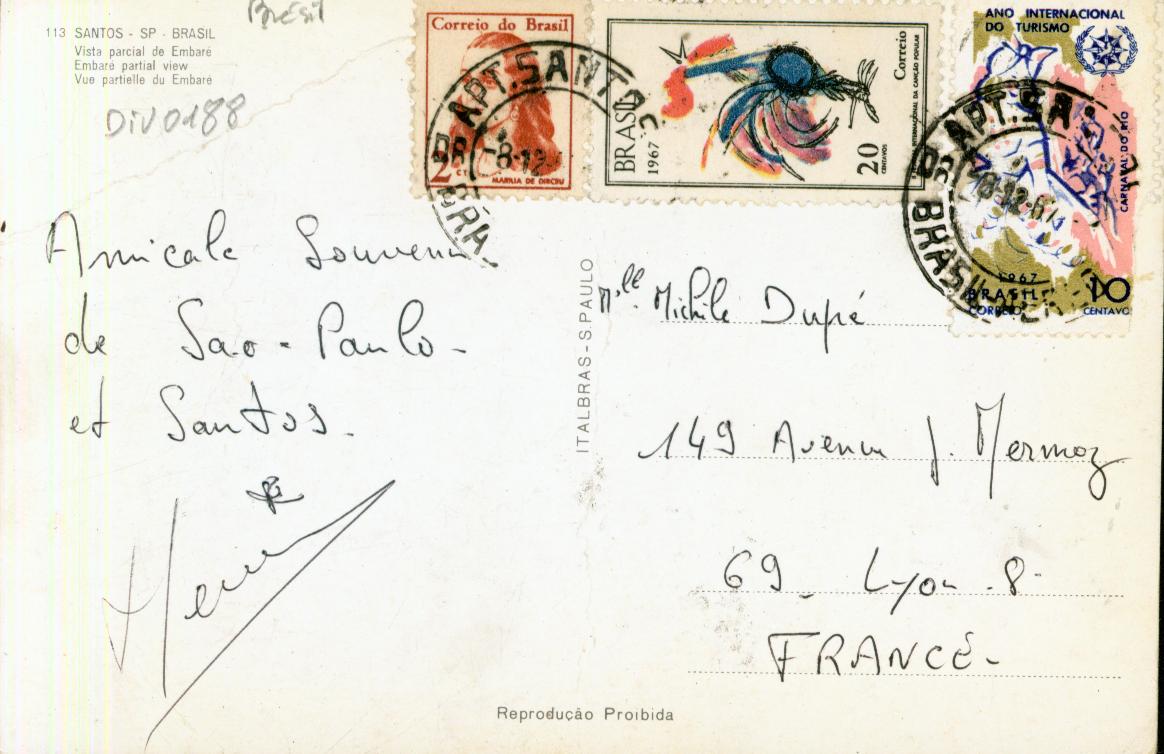 Brésil
113 SANTOS - SP - BRASIL
Vista parcial de Embaré
Embaré partial view
Vue partielle du Embaré
DIV0188
Correio do Brasil
2 CTS
MARILIA DE DIRCEU
BRASIL
1967
Correio
INTERNACIONAL DA CANÇÃO POPULAR
20
CENTAVOS
ANO INTERNACIONAL
DO TURISMO
CARNAVAL DO RIO
1967
BRASIL
CORREIO
10
CENTAVOS
APT. SANTOS
8-12
BRA
APT. SA
8-12-67
BRASIL
Amicale Souvenir
de Sao-Paulo-
et Santos.
ITALBRAS-S.PAULO
Mlle Michèle Dupé
149 Avenue J. Mermoz
69_ Lyon-8-
FRANCE-
Reprodução Proibida